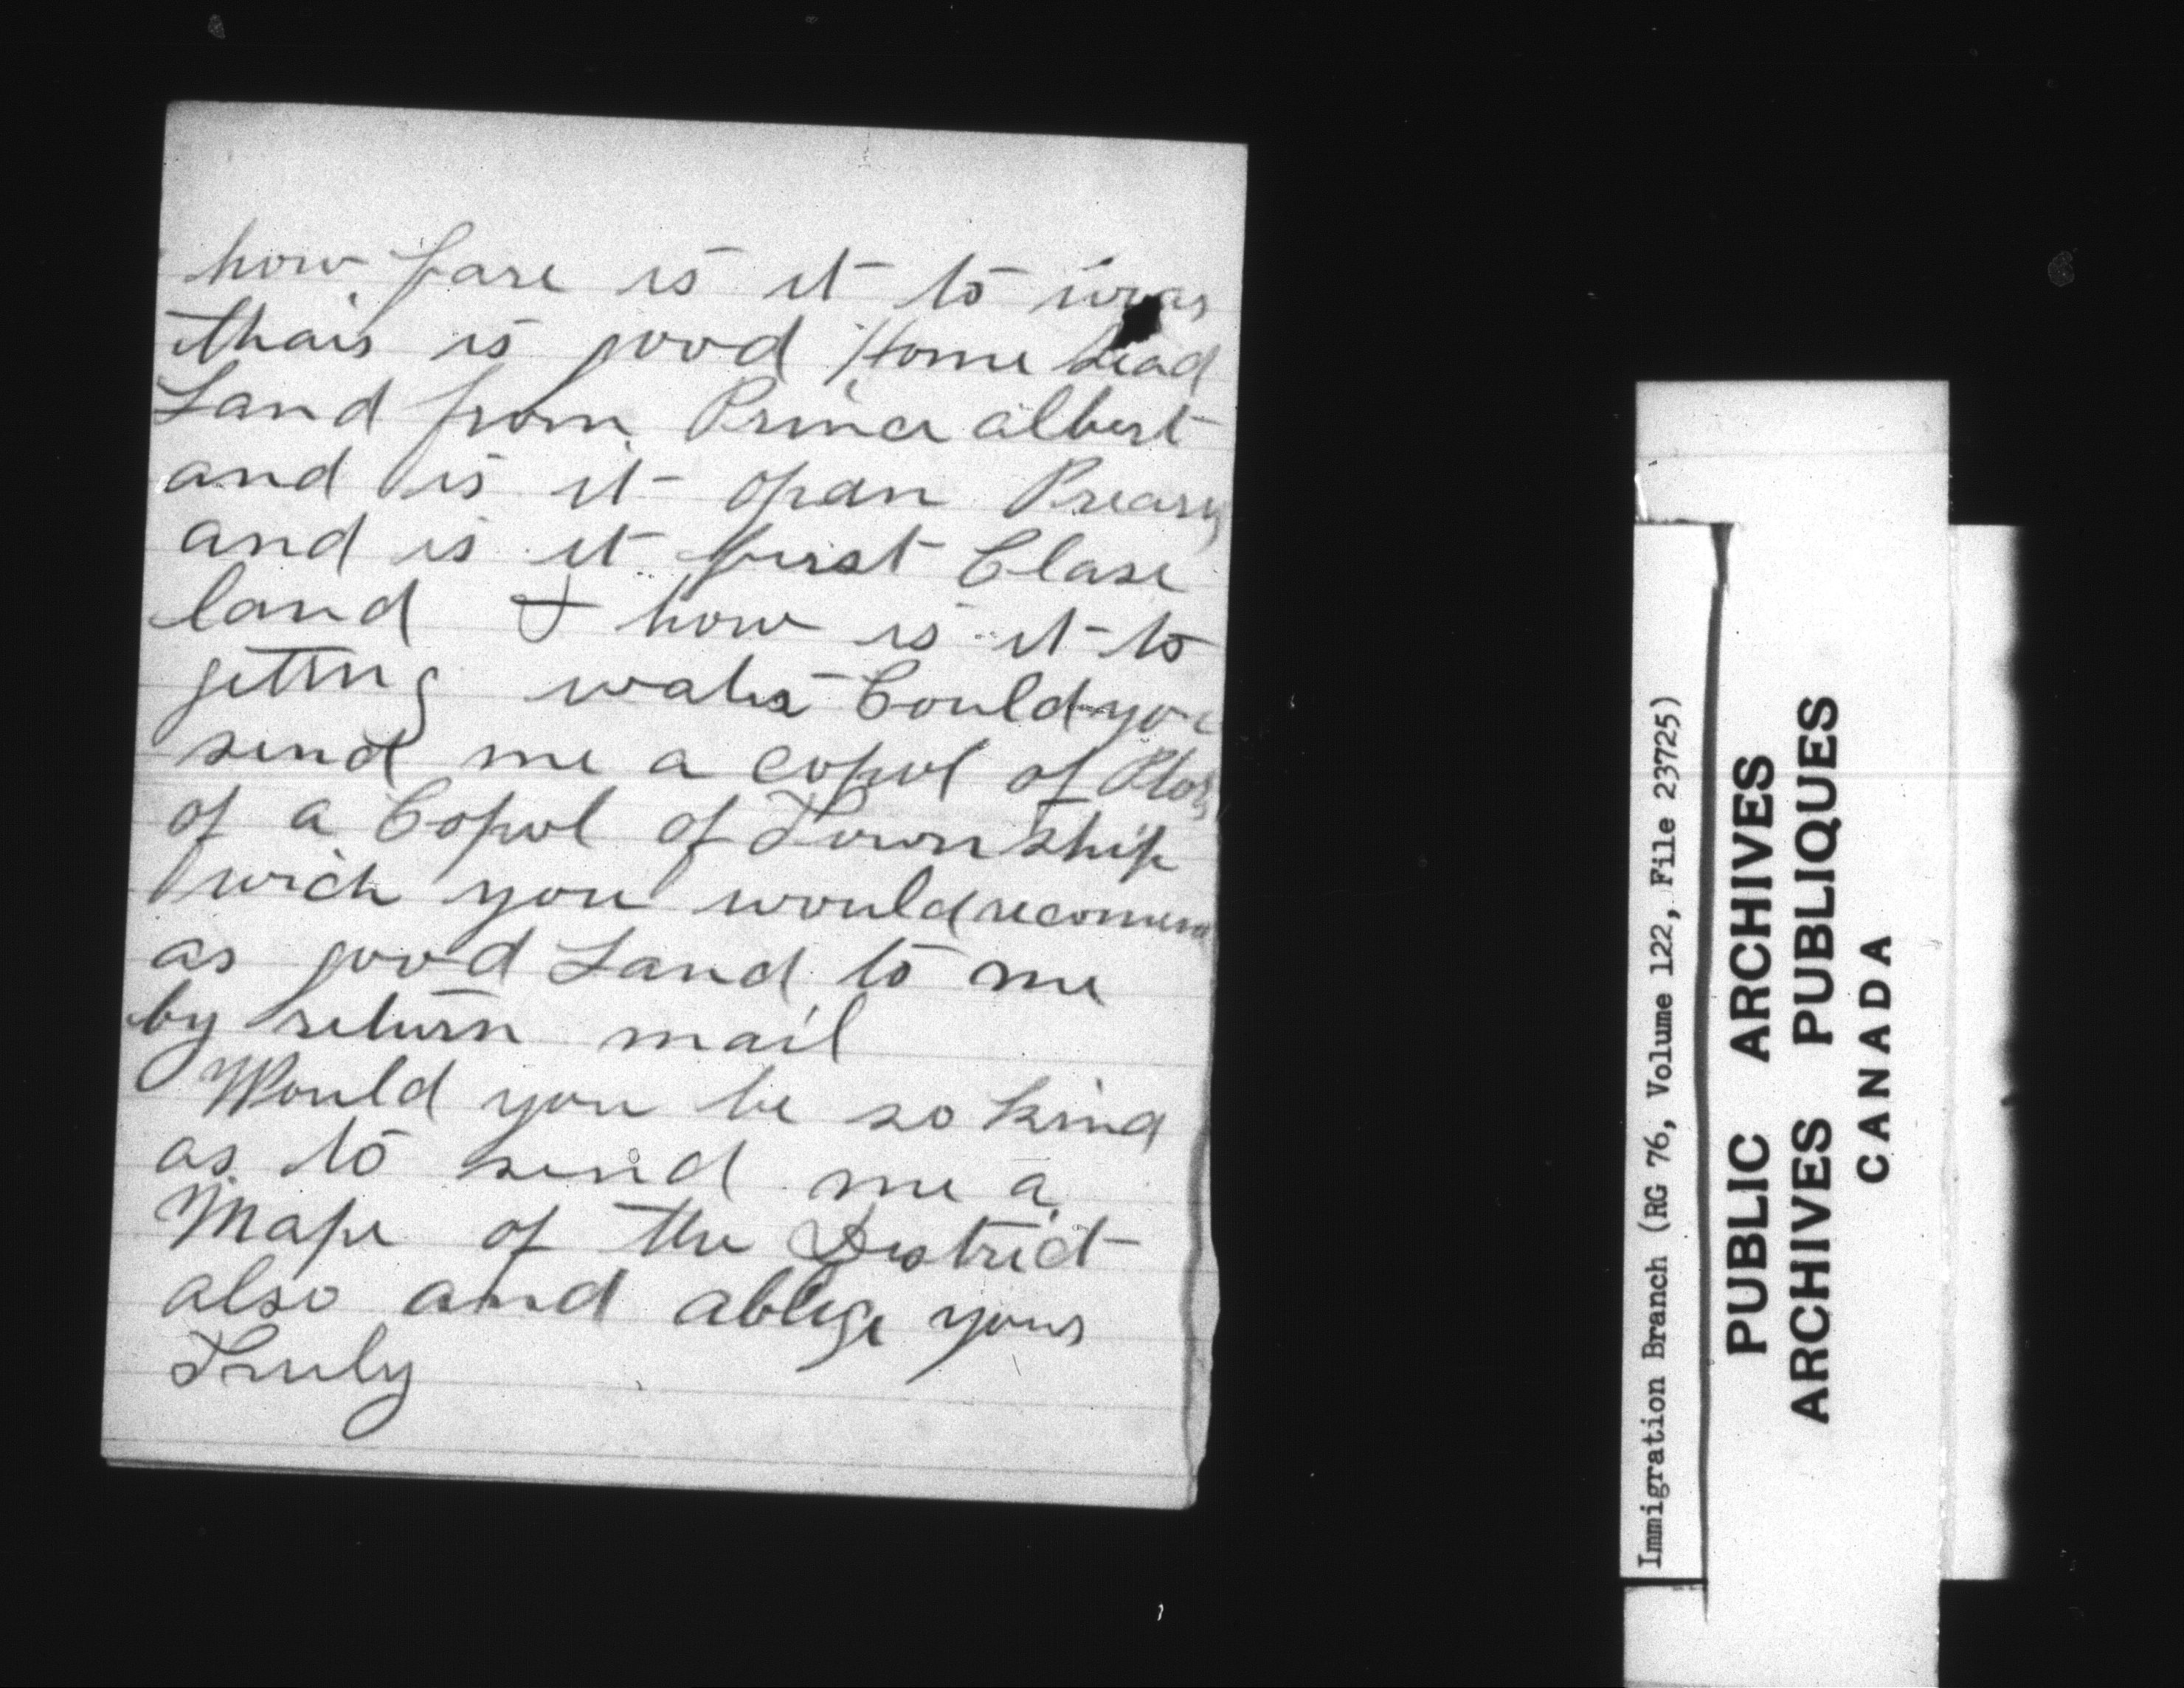 how fare is it to
thais is good Home Stead
Land from Prince albert
and is it opan Preary
and is it first Clase
land & how is it to
getting water Could you
send me a copol of
of a Copol of Town Ship
wich you would recomend
as good Land to me
by return mail
Would you be so kind
as to send me a
Mape of the District
also and ablige yours
Truly
Immigration Branch (RG 76, Volume 122, File 23725)
PUBLIC ARCHIVES
ARCHIVES PUBLIQUES
CANADA